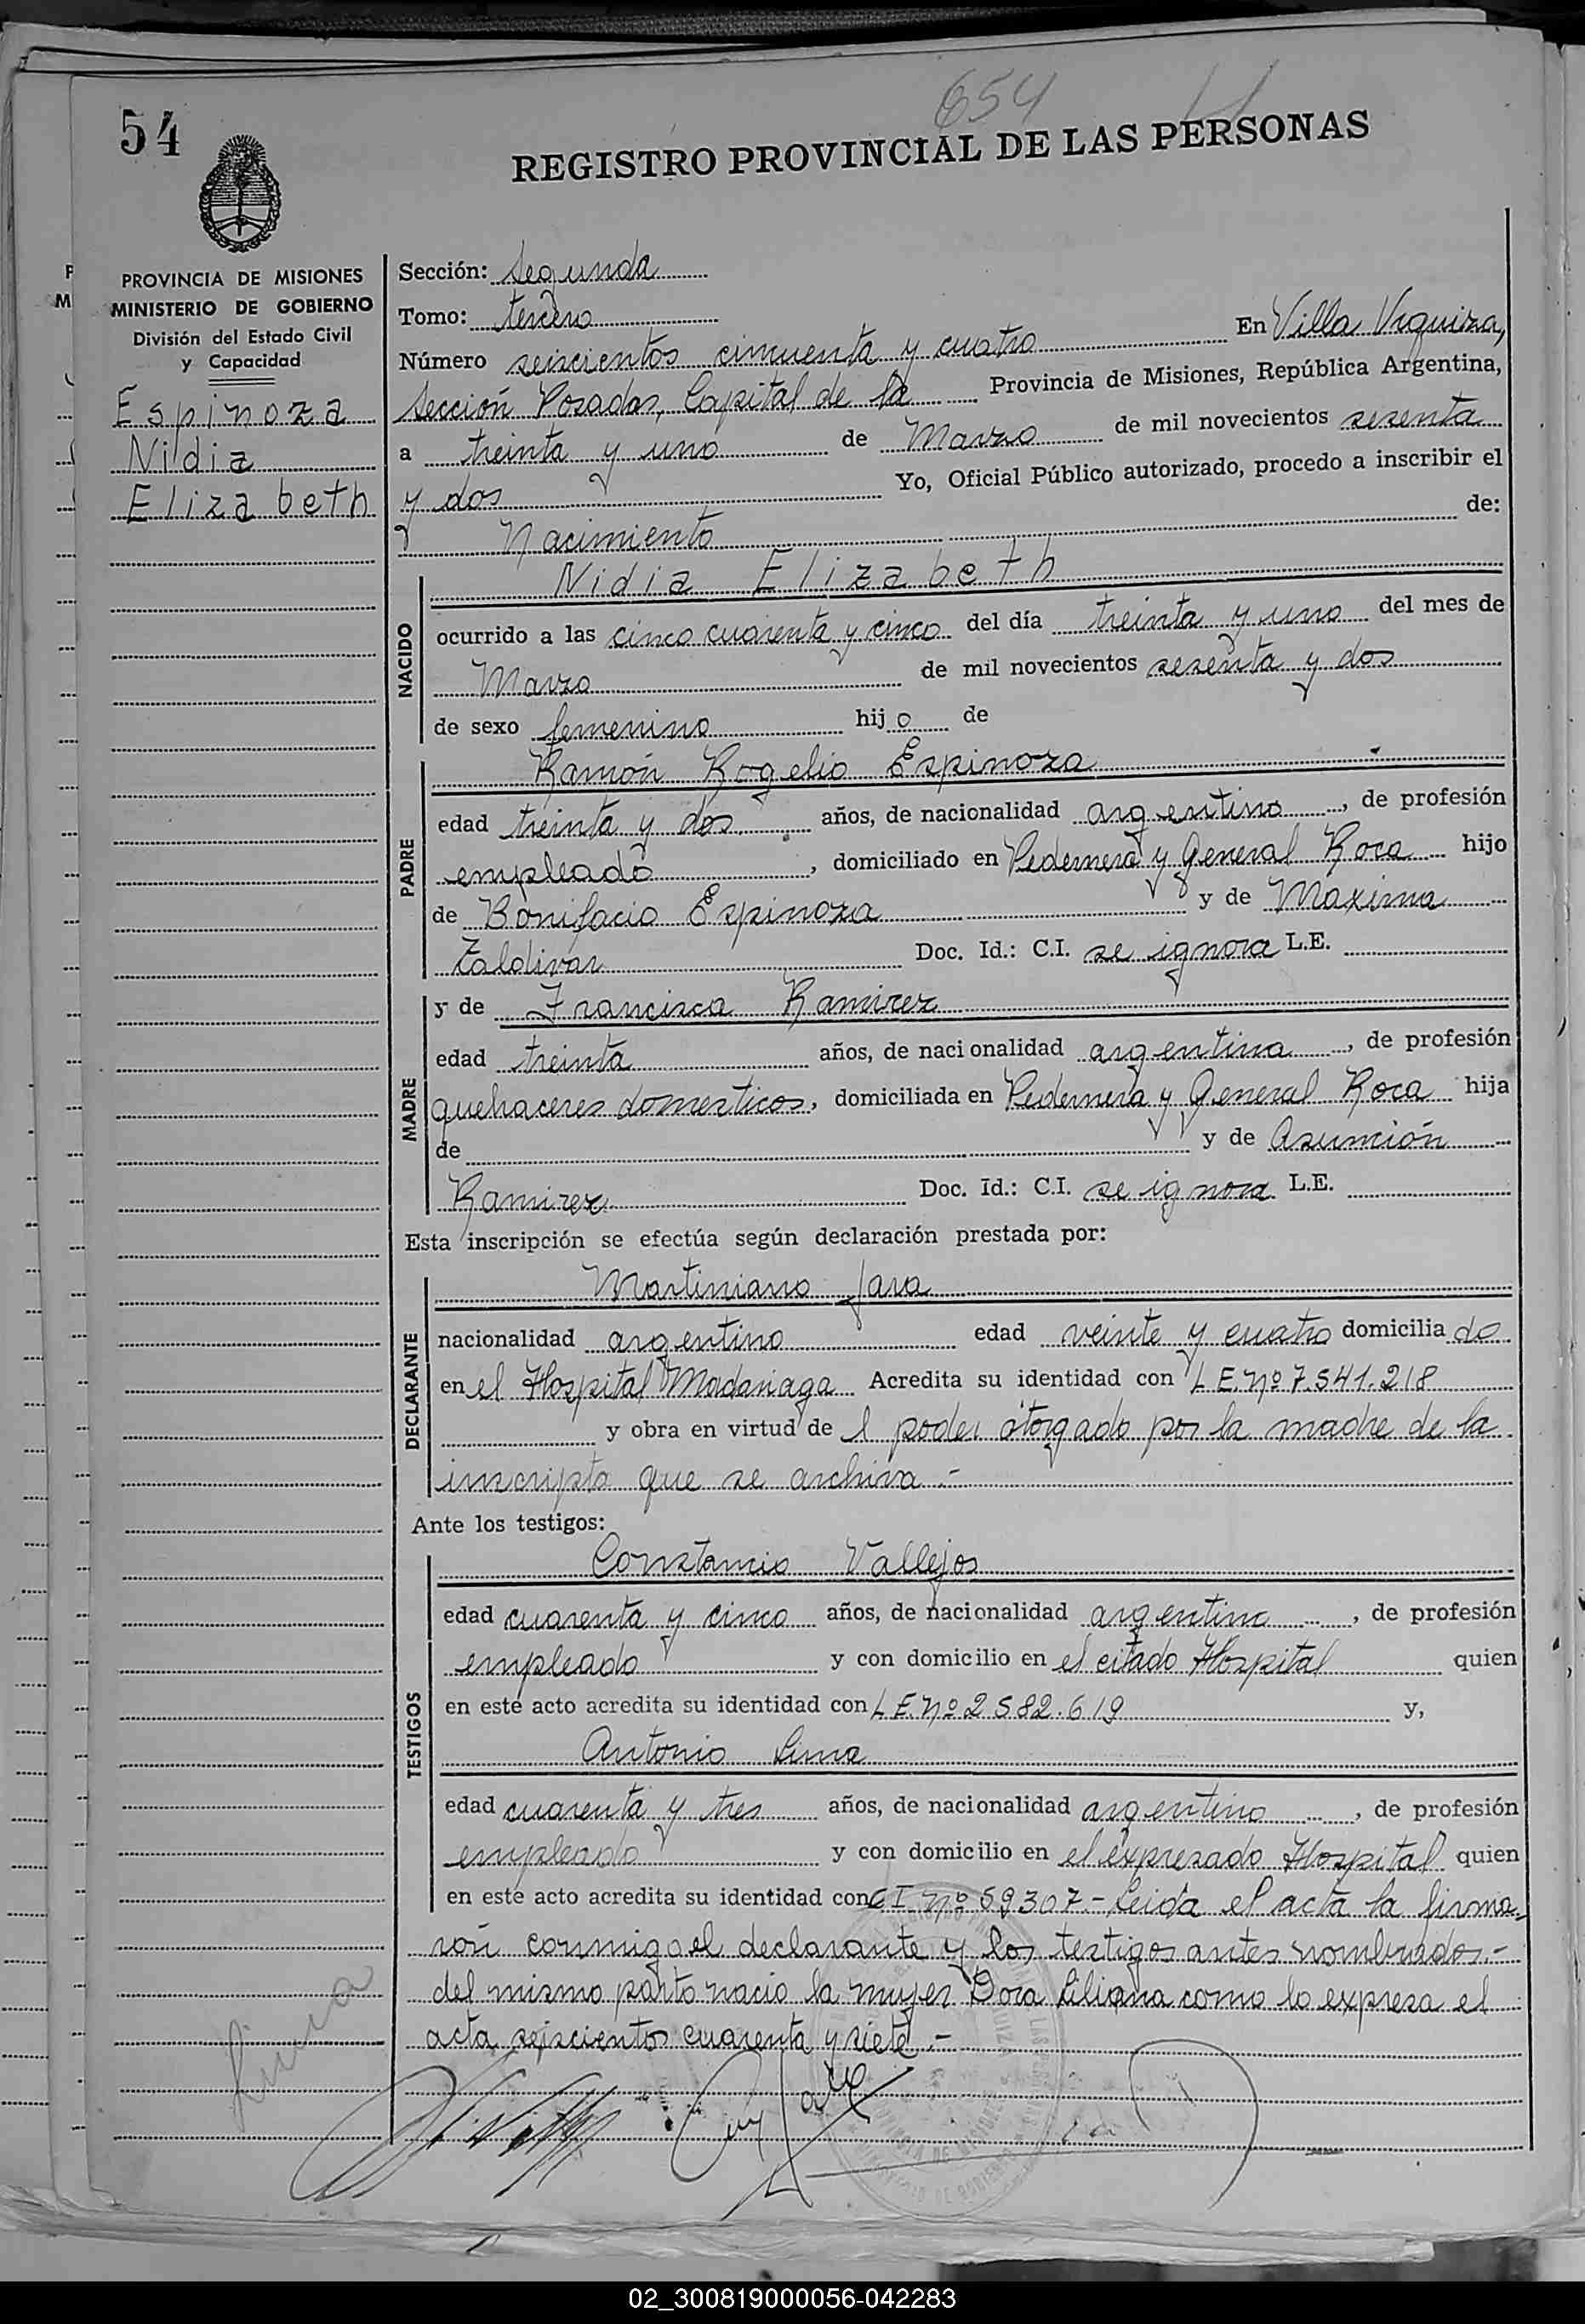 654
54
REGISTRO PROVINCIAL DE LAS PERSONAS
PROVINCIA DE MISIONES
MINISTERIO DE GOBIERNO
División del Estado Civil
y Capacidad
Espinoza
Nidia
Elizabeth
Sección: Segunda
Tomo: tercero
Número seiscientos cincuenta y cuatro En Villa Urquiza,
Sección Posadas, Capital de la Provincia de Misiones, República Argentina,
a treinta y uno de Marzo de mil novecientos sesenta
y dos Yo, Oficial Público autorizado, procedo a inscribir el
Nacimiento de:
NACIDO
Nidia Elizabeth
ocurrido a las cinco cuarenta y cinco del día treinta y uno del mes de
Marzo de mil novecientos sesenta y dos
de sexo femenino hijo de
PADRE
Ramón Rogelio Espinoza
edad treinta y dos años, de nacionalidad argentino, de profesión
empleado, domiciliado en Pedernera y General Roca hijo
de Bonifacio Espinoza y de Maxima
Zaldivar Doc. Id.: C.I. se ignora L.E.
MADRE
y de Francisca Ramirez
edad treinta años, de nacionalidad argentina, de profesión
quehaceres domesticos, domiciliada en Pedernera y General Roca hija
de y de Asunción
Ramirez Doc. Id.: C.I. se ignora L.E.
Esta inscripción se efectúa según declaración prestada por:
DECLARANTE
Martiniano Jara
nacionalidad argentino edad veinte y cuatro domiciliado
en el Hospital Madariaga Acredita su identidad con L E. Nº 7.541.218
y obra en virtud del poder otorgado por la madre de la
inscripta que se archiva.-
Ante los testigos:
TESTIGOS
Constancio Vallejos
edad cuarenta y cinco años, de nacionalidad argentino, de profesión
empleado y con domicilio en el citado Hospital quien
en este acto acredita su identidad con L E. Nº 2582.619 y,
Antonio Lima
edad cuarenta y tres años, de nacionalidad argentino, de profesión
empleado y con domicilio en el expresado Hospital quien
en este acto acredita su identidad con C I Nº 59307.- Leida el acta la firma
ron conmigo el declarante y los testigos antes nombrados.-
del mismo parto nacio la mujer Dora Liliana como lo expresa el
acta seiscientos cuarenta y siete.-
Lima
02_300819000056-042283